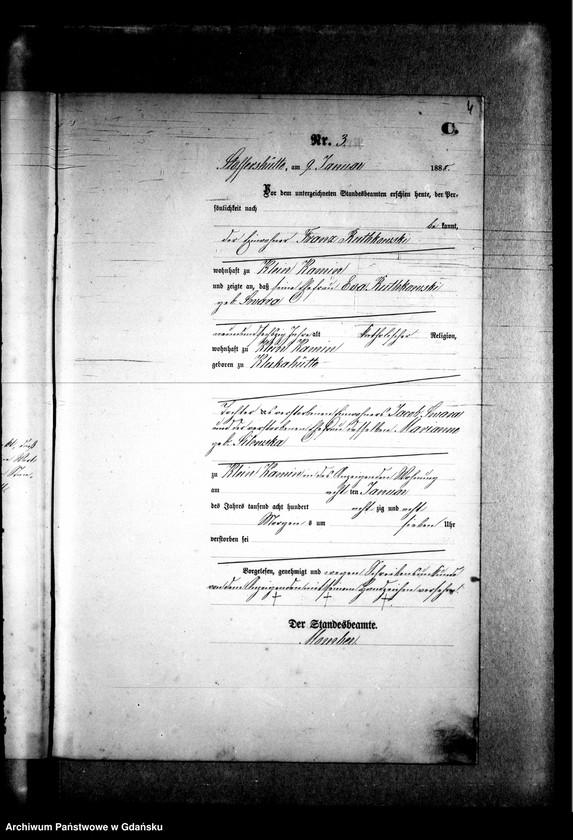 4
C.
Nr. 3
Stoffershütte, am 9 Januar 1888.
Vor dem unterzeichneten Standesbeamten erschien heute, der Per-
sönlichkeit nach
be kannt,
der Einwohner Franz Ruthkowski
wohnhaft zu Klein Kamin
und zeigte an, daß seine Ehefrau Eva Ruthkowski
geb.
neunundsechszig Jahre alt katholischer Religion,
wohnhaft zu Klein Kamin
geboren zu
Tochter des verstorbenen Einwohners Jacob
und der verstorbenen Ehefrau desselben Marianna
geb.
zu Klein Kamin in des Anzeigenden Wohnung
am acht ten Januar
des Jahrs tausend acht hundert acht zig und acht
Morgen s um sieben Uhr
verstorben sei
Vorgelesen, genehmigt und wegen Schreibensunkunde
von dem Anzeigenden mit seinem Handzeichen versehen.
+ + +
Der Standesbeamte.
Archiwum Państwowe w Gdańsku